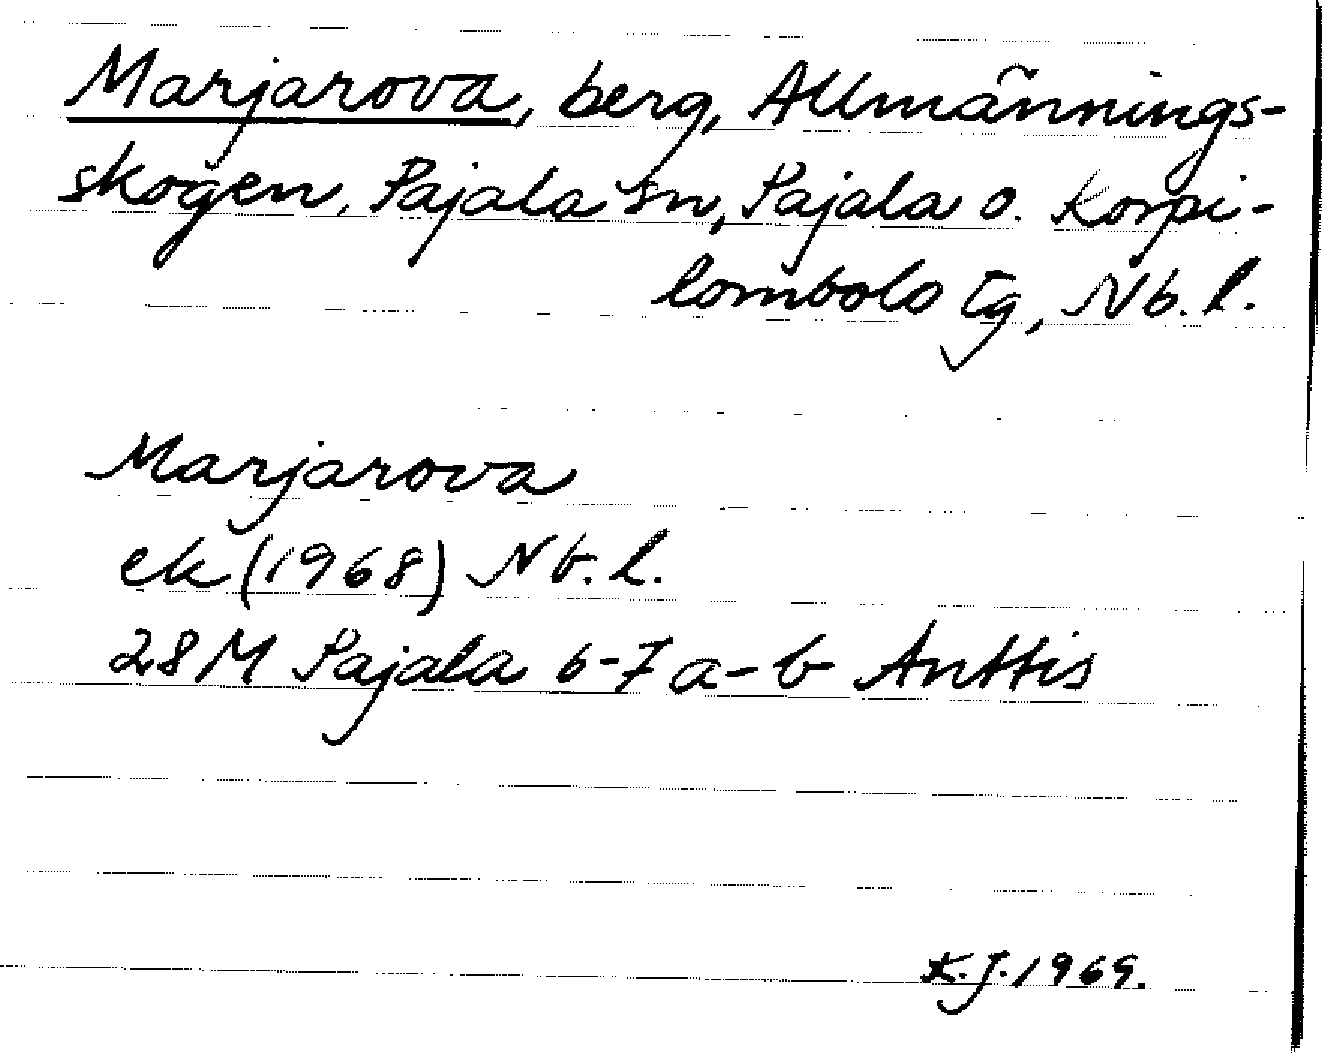 Marjarova, berg, Allmännings-
skogen, Pajala sn, Pajala o. Korpi-
lombolo tg, Nb. l.
Marjarova
ek (1968) Nb. l.
28 M Pajala 6-7 a-b Anttis
K.J. 1969.